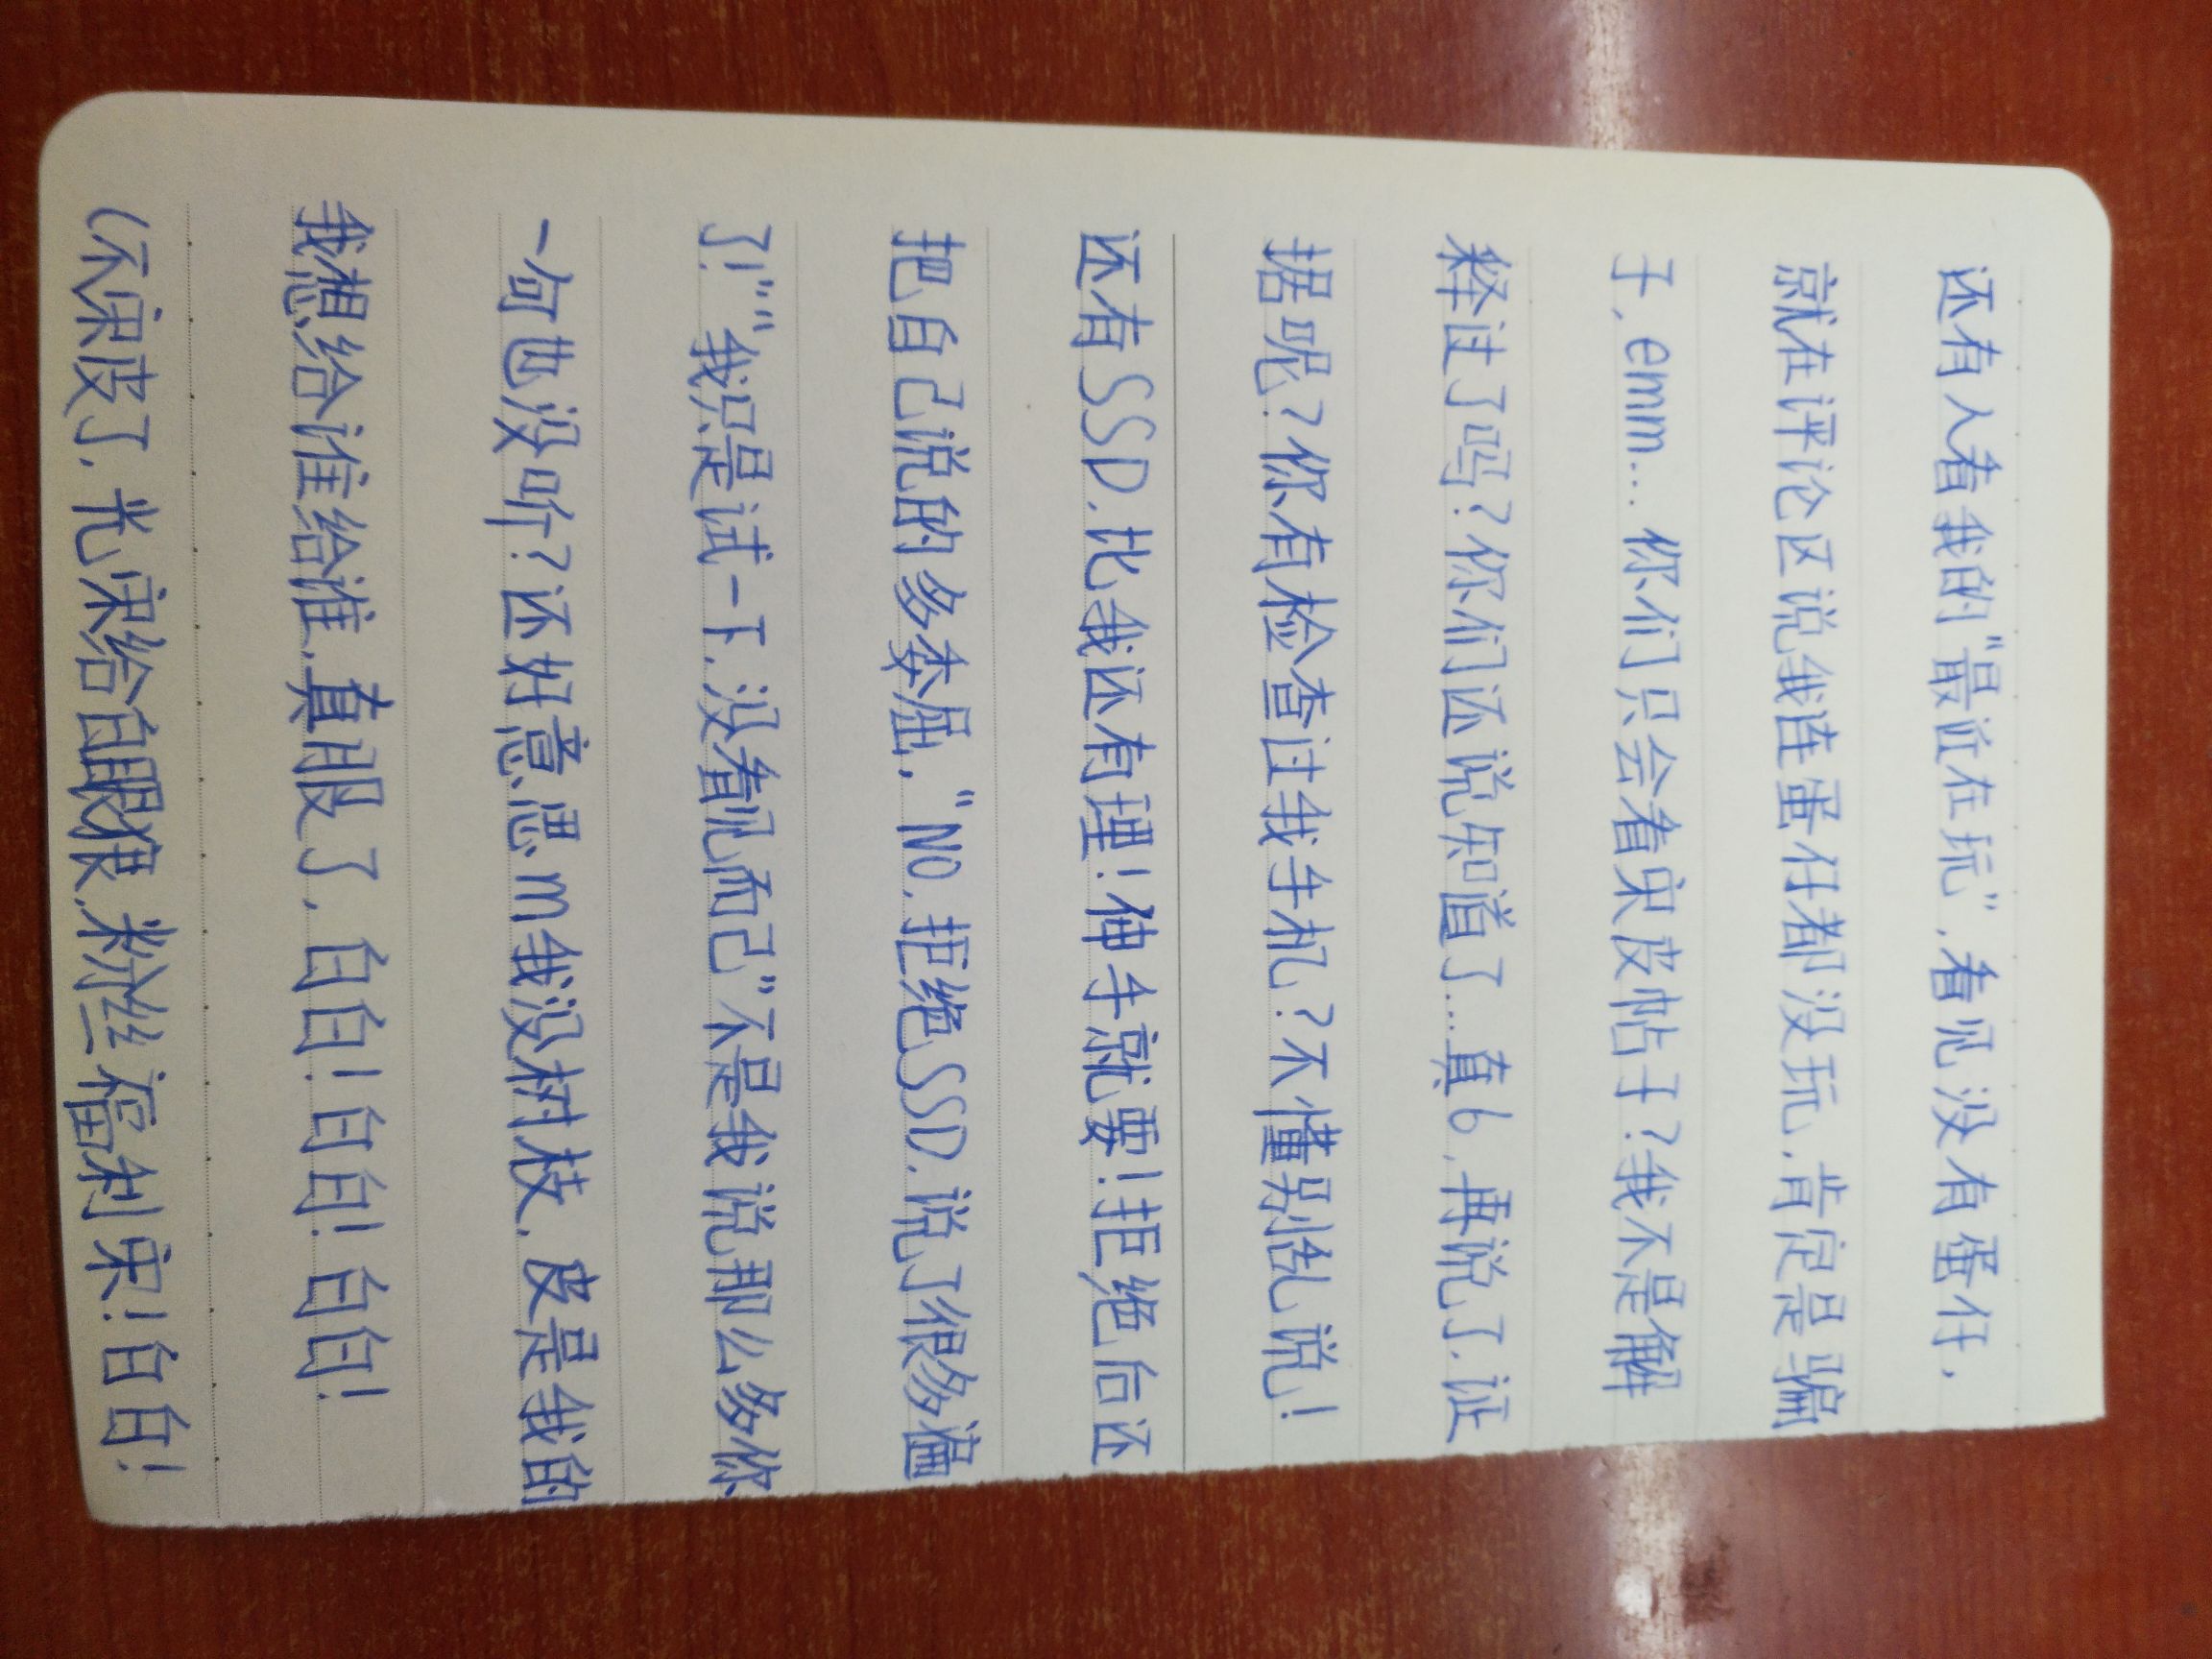 还有人看我的“最近在玩”,看见没有蛋仔,
就在评论区说我连蛋仔都没玩,肯定是骗
子,emm...你们只会看宋皮帖子?我不是解
释过了吗?你们还说知道了...真6,再说了,证
据呢?你有检查过我手机?不懂别乱说!
还有SSD,比我还有理!伸手就要!拒绝后还
把自己说的多委屈,“NO,拒绝SSD,说了很多遍
了!”“我只是试一下,没看见而已”不是我说那么多你
一句也没听?还好意思m我没树枝,皮是我的
我想给谁给谁,真服了,白白!白白!白白!
(不宋皮了,光宋给白眼狼,粉丝福利宋!白白!